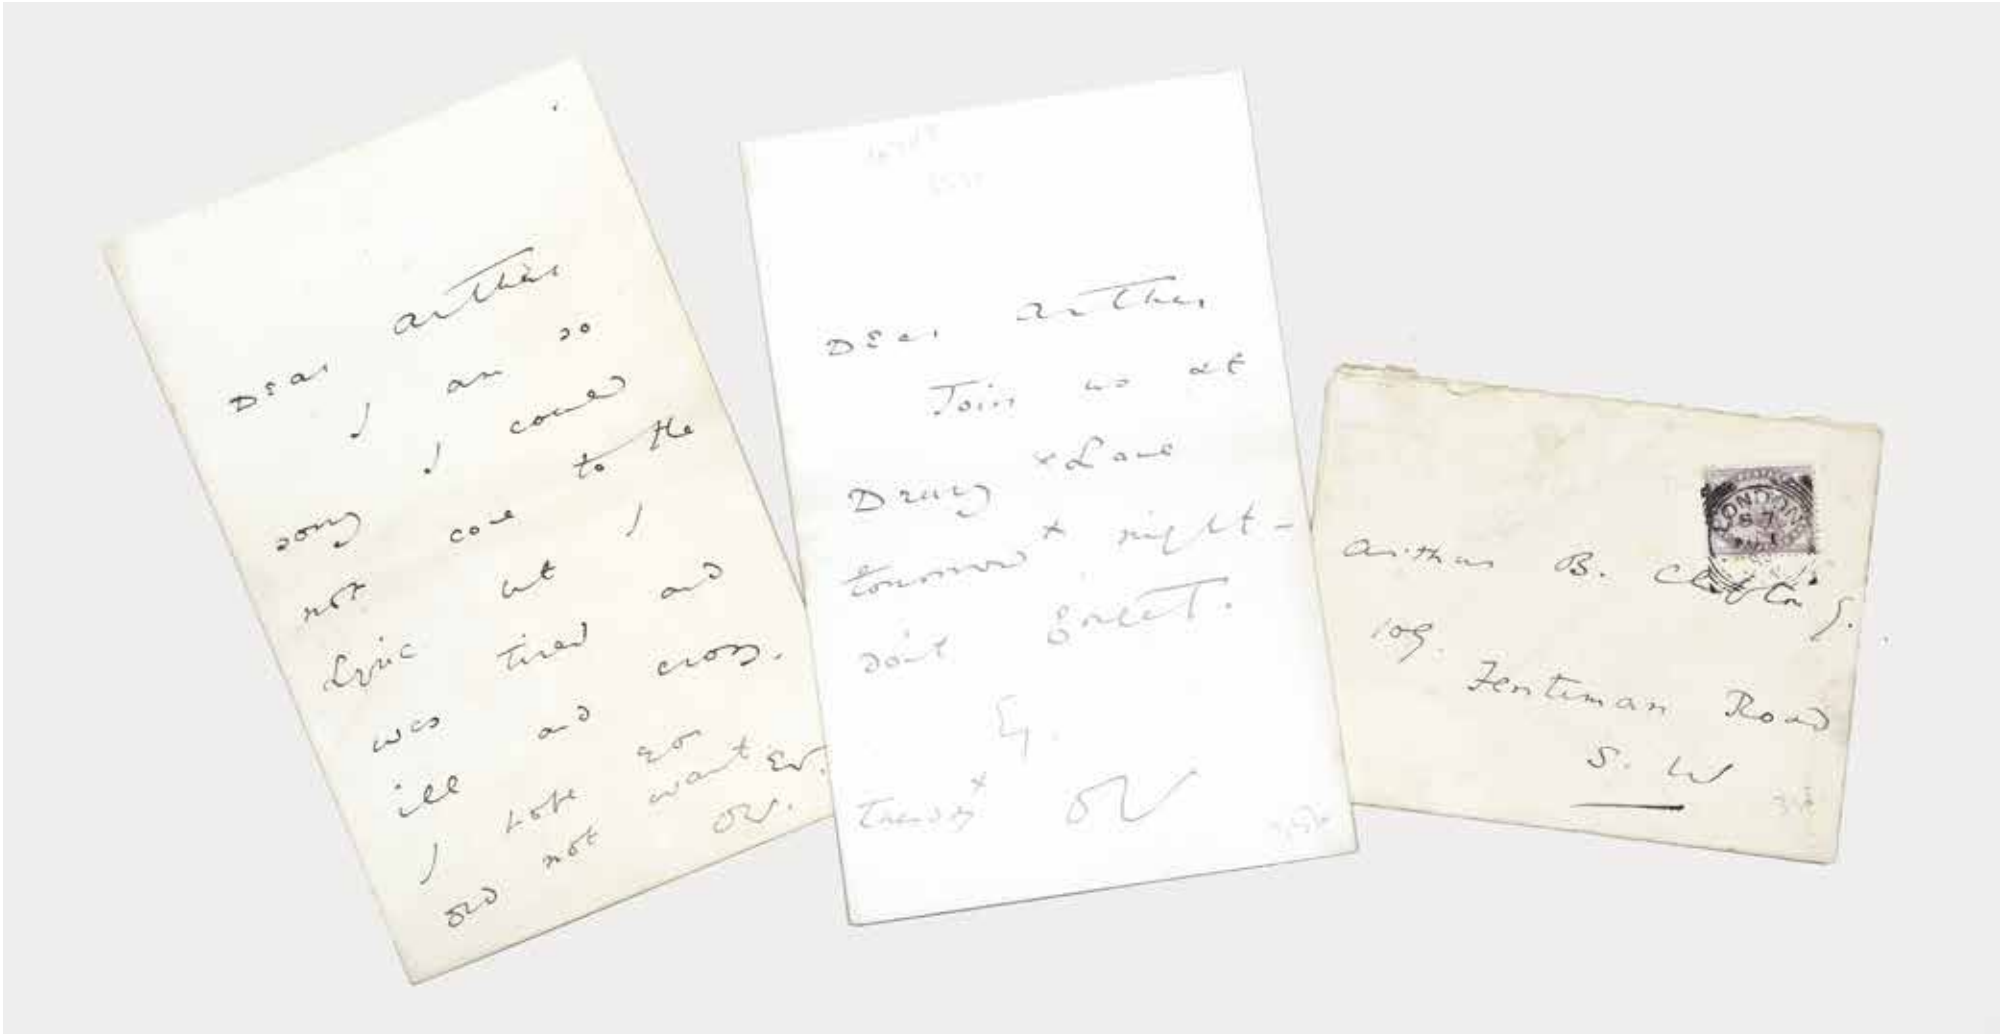 Dear Arthur
I am so
sorry I could
not come to the
Lyric but I
was tired and
ill and cross.
I hope you
did not want
OW.
Dear Arthur
Join us at
Drury × Lane
tomorrow × night –
don't forget.
Tuesday × OW
LONDON
Arthur B. Clifton
109.
Fentiman Road
S. W